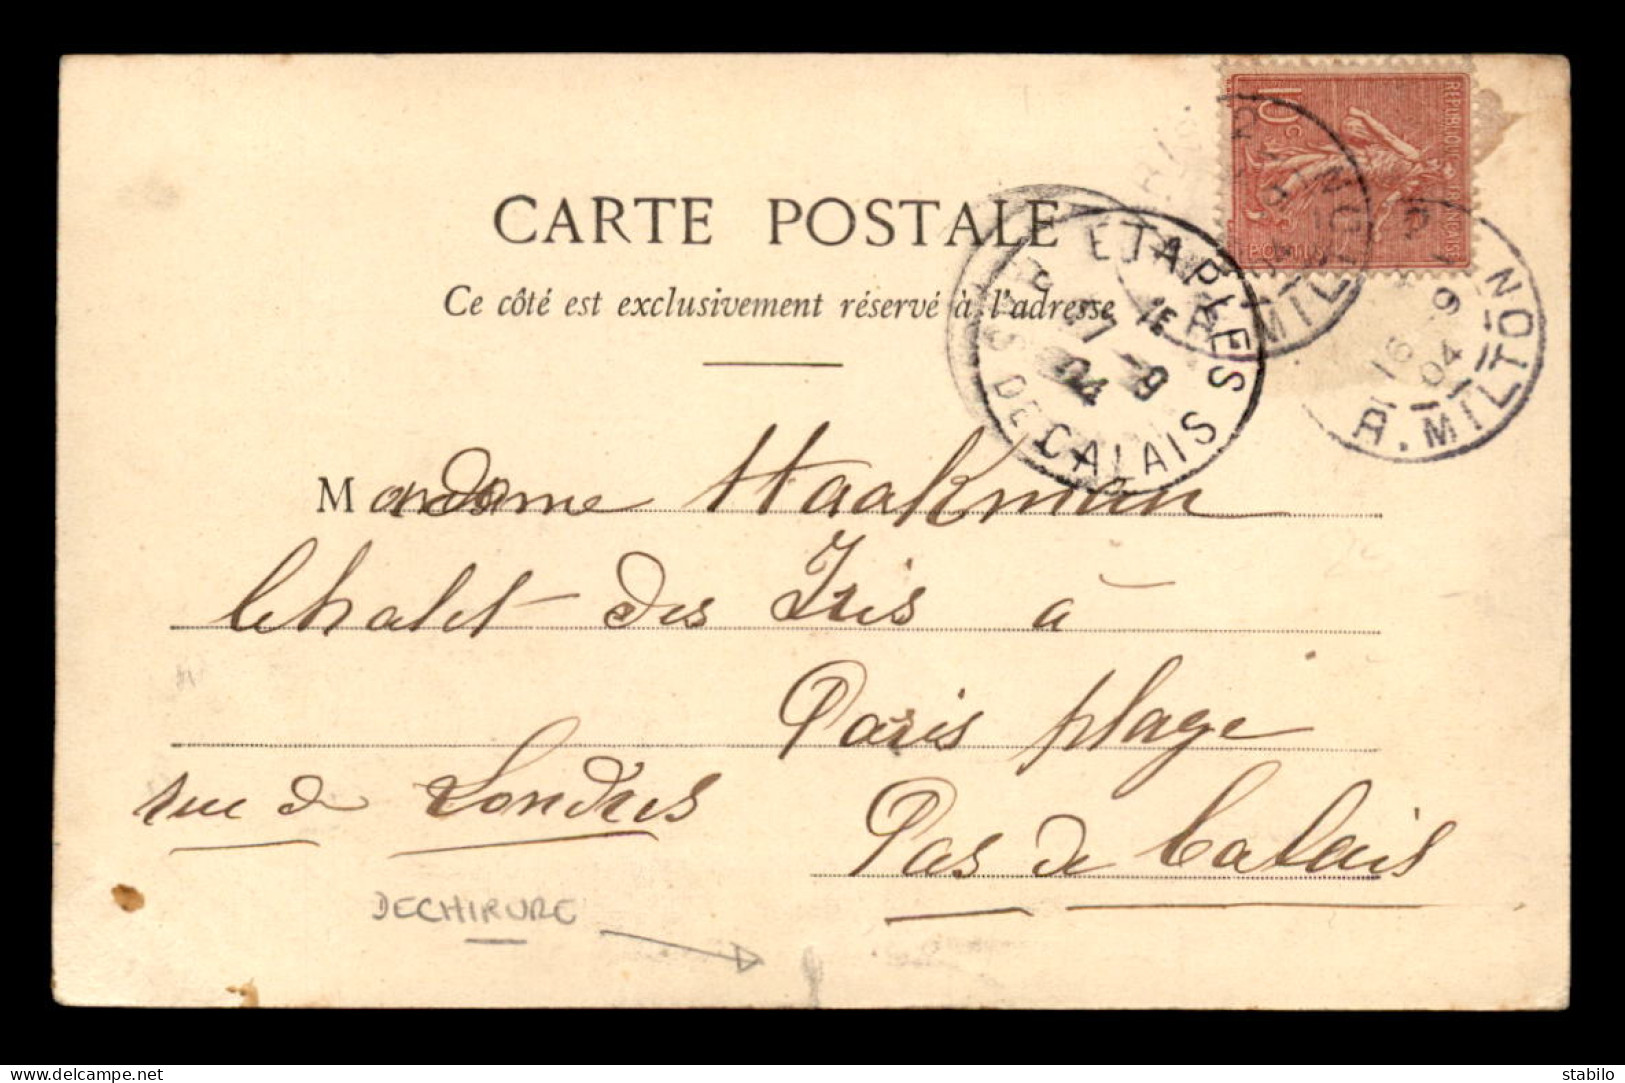 10c
REPUBLIQUE FRANÇAISE
POSTES
R. MILTON
16 - 9
04
R. MILTON
CARTE POSTALE
Ce côté est exclusivement réservé à l'adresse
ETAPLES
17 - 9
04
PAS DE CALAIS
Madame Haakman
Chalet des Iris à
Paris plage
rue de Londres
Pas de Calais
DECHIRURE
www.delcampe.net
stabilo